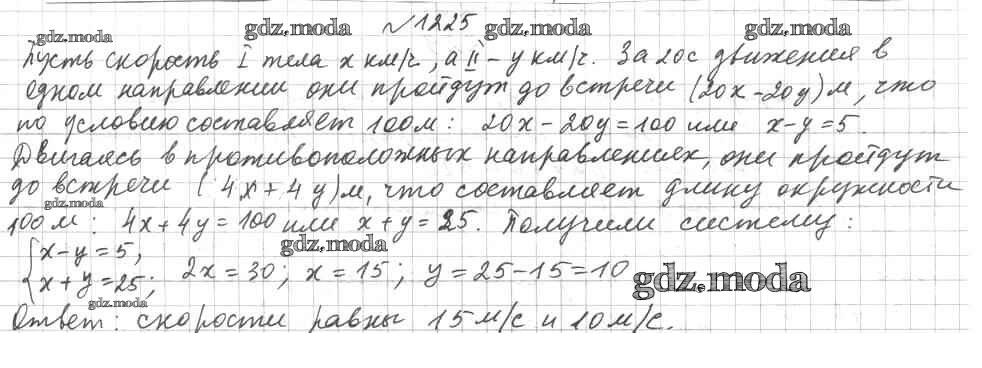 gdz.moda gdz.moda № 1225 gdz.moda gdz.moda
Пусть скорость I тела x км/ч, а II – y км/ч. За 20с движения в
одном направлении они пройдут до встречи (20x-20y)м, что
по условию составляет 100м: 20x-20y=100 или x-y=5.
Двигаясь в противоположных направлениях, они пройдут
до встречи (4x+4y)м, что составляет длину окружности
gdz.moda
100м: 4x+4y=100 или x+y=25. Получили систему:
{x-y=5, gdz.moda
{x+y=25; 2x=30; x=15; y=25-15=10 gdz.moda
gdz.moda
Ответ: скорости равны 15м/с и 10м/с.